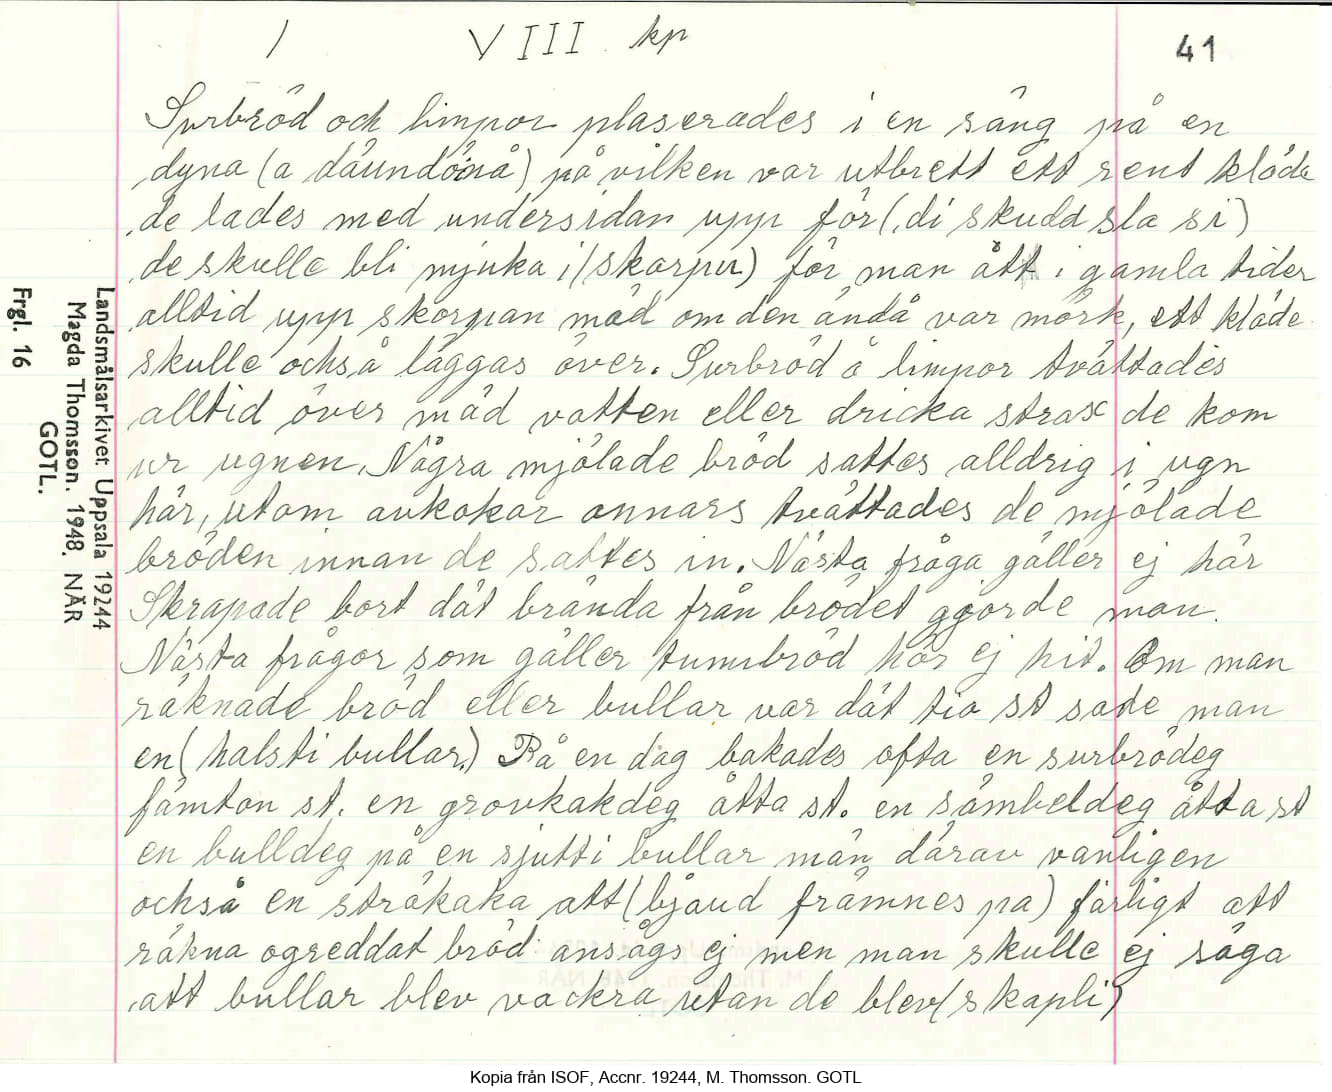 / VIII kp 41
Surbröd och limpor plaserades i en säng på en
dyna (a dáundöinå) på vilken var utbrett ett rent kläde
de lades med undersidan upp för (di skudd sla si)
de skulle bli mjuka i (skorpu) för man ått i gamla tider
alltid upp skorpan mäd om den ändå var mörk, ett kläde
skulle också läggas över. Surbröd å limpor tvättades
alltid över mäd vatten eller dricka strax de kom
ur ugnen. Några mjölade bröd sattes alldrig i ugn
här, utom aukokor annars tvättades de mjölade
bröden innan de sattes in. Nästa fråga gäller ej här
Skrapade bort dät brända från brödet gjorde man.
Nästa frågor som gäller tunnbröd hör ej hit. Om man
räknade bröd eller bullar var dät tio st sade man
en (halsti bullar.) På en dag bakades ofta en surbrödeg
fämton st. en grovkakdeg åtta st. en sämbeldeg åtta st
en bulldeg på en sjutti bullar män därav vanligen
också en sträkaka att (bjaud främnes pa) farligt att
räkna ogreddat bröd ansågs ej men man skulle ej säga
att bullar blev vackra utan de blev (skapli)
Landsmålsarkivet. Uppsala 19244
Magda Thomsson. 1948. NÄR
GOTL.
Frgl. 16
Kopia från ISOF, Accnr. 19244, M. Thomsson. GOTL